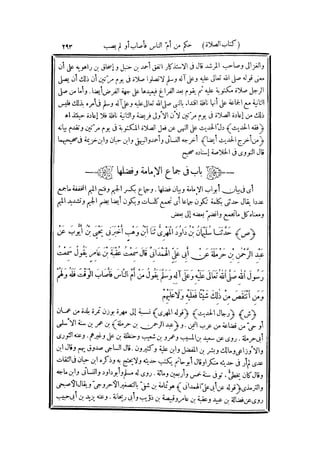 (كتاب الصلاة) حكم من أمّ الناس فأصاب أو لم يصب ٢٩٣
والغزالى وصاحب المرشد قال فى الاستذكار اتفق أحمد بن حنبل و إسحاق بن راهويه على أن
معنى قوله صلى الله تعالى عليه وعلى آله وسلم لاتصلوا صلاة فى يوم مرتين أن ذلك أن يصلى
الرجل صلاة مكتوبة عليه ثم يقوم بعد الفراغ فيعيدها على جهة الفرض أيضا . وأما من صلى
الثانية مع الجماعة على أنها نافلة اقتداء بالنبى صلى الله تعالى عليه وعلى آله وسلم فى أمره بذلك فليس
ذلك من إعادة الصلاة فى يوم مرتين لأن الأولى فريضة والثانية نافلة فلا إعادة حينئذ اه
﴿فقه الحديث﴾ دلّ الحديث على النهى عن فعل الصلاة المكتوبة فى يوم مرتين وتقدم بيانه
﴿من أخرج الحديث أيضا﴾ أخرجه النسائى وأحمد والبيهقى وابن حبان وابن خزيمة فى صحيحيهما
قال النووى فى الخلاصة إسناده صحيح
باب فى جماع الإمامة وفضلها
أى فى بيان أبواب الإمامة وبيان فضلها . وجماع بكسر الجيم وفتح الميم المخففة ماجمع
عددا يقال حدثنى بكلمة تكون جماعا أى تجمع كلمات ويكون أيضا بضم الجيم وتشديد الميم
ومعناه كل ماتجمع وانضم بعضه إلى بعض
﴿ص﴾ حَدَّثَنَا سُلَيْمَانُ بْنُ دَاوُدَ الْمَهْرِىُّ ثَنَا ابْنُ وَهْبٍ أَخْبَرَنِى يَحْيَى بْنُ أَيُّوبَ عَنْ
عَبْدِ الرَّحْمٰنِ بْنِ حَرْمَلَةَ عَنْ أَبِى عَلِىٍّ الْهَمْدَانِىِّ قَالَ سَمِعْتُ عُقْبَةَ بْنَ عَامِرٍ يَقُولُ سَمِعْتُ
رَسُولَ اللهِ صَلَّى اللهُ تَعَالَى عَلَيْهِ وَعَلَى آلِهِ وَسَلَّمَ يَقُولُ مَنْ أَمَّ النَّاسَ فَأَصَابَ الْوَقْتَ فَلَهُ وَلَهُمْ
وَمَنِ انْتَقَصَ مِنْ ذٰلِكَ شَيْئًا فَعَلَيْهِ وَلَا عَلَيْهِمْ
﴿ش﴾ ﴿رجال الحديث﴾ ﴿قوله المهرى﴾ نسبة إلى مهرة بوزن تمرة بلدة من عمان
أو حىّ من قضاعة من عرب اليمن . و ﴿عبد الرحمن بن حرملة﴾ بن عمرو بن سنة الأسلمى
أبى حرملة . روى عن سعيد بن المسيب وعمرو بن شعيب وحنظلة بن على وغيرهم . وعنه الثورى
والأوزاعى ومالك وبشر بن المفضل وابن علية وكثيرون . قال الساجى صدوق يهم وقال ابن
عدى لم أر فى حديثه منكرا وقال أبو حاتم يكتب حديثه ولا يحتج به وذكره ابن حبان فى الثقات
وقال كان يخطئ . توفى سنة خمس وأربعين ومائة . روى له مسلم وأبو داود والنسائى وابن ماجه
والترمذى ﴿قوله عن أبى على الهمدانى﴾ هو ثمامة بن شفىّ بالتصغير الأحروجى ويقال الأصبحى
روى عن فضالة بن عبيد وعقبة بن عامر وقبيصة بن ذؤيب وأبى ريحانة . وعنه يزيد بن أبى حبيب